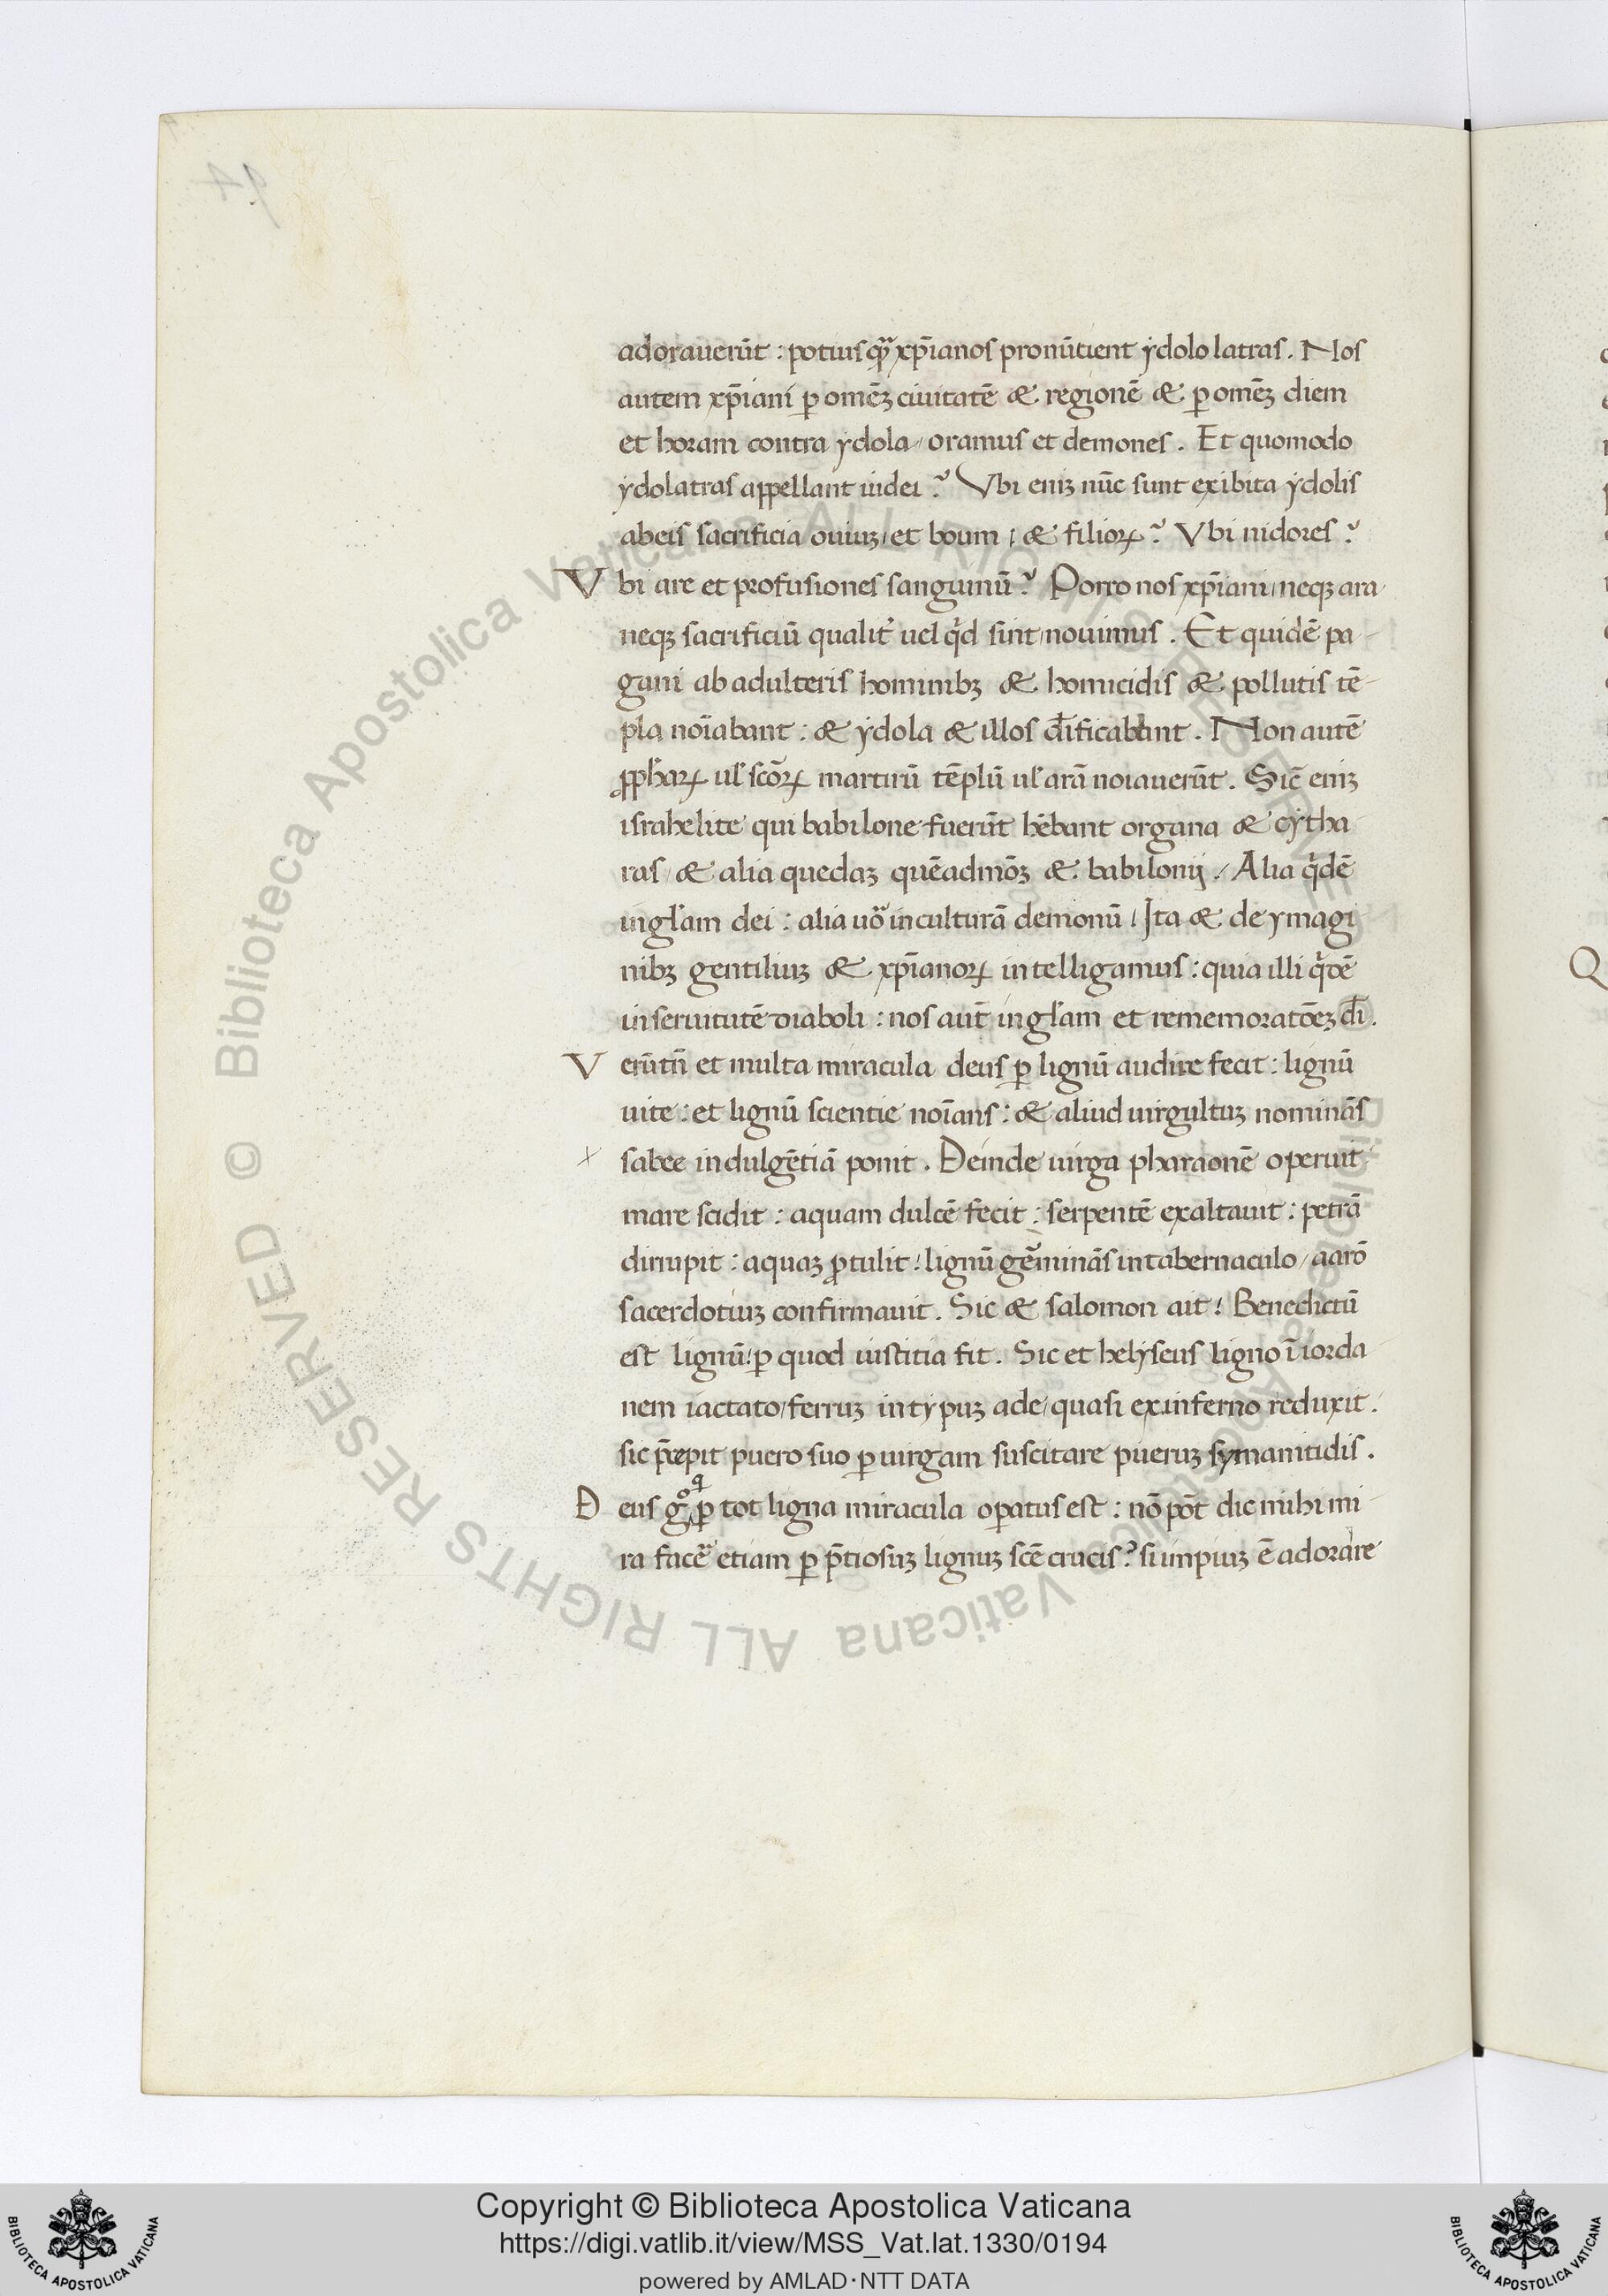 adorauerūt : potius qͣ xp̄ianos pronūtient ydololatras . Nos
autem xp̄iani ꝑ omēꝫ ciuitatē & regionē & ꝑ omēꝫ diem
et horam contra ydola / oramus et demones . Et quomodo
ydolatras appellant iudei ? Vbi eniꝫ nūc sunt exibita ydolis
abeis sacrificia ouiuꝫ / et boum / & filioꝝ ? Vbi nidores ?
Vbi are et profusiones sanguinū ? Porro nos xp̄iani / neqꝫ ara
neqꝫ sacrificiū qualit᷑ uel qͥd sint / nouimus . Et quidē pa
gani ab adulteris hominibꝫ & homicidis & pollutis tē
pla noīabant : & ydola & illos d̄ificabant . Non autē
ꝓpharꝝ ul' scōꝝ martirū tēplū ul' arā noiauerūt . Sic̄ eniꝫ
israhelite qui babilone fuerūt hēbant organa & cytha
ras / & alia quedaꝫ quēadmōꝫ & babilonij . Alia qͥdē
in gl'am dei : alia uō in culturā demonū / Ita & de ymagi
nibꝫ gentiliuꝫ & xp̄ianoꝝ intelligamus : quia illi qͥdē
in seruitutē diaboli : nos aūt in gl'am et rememoratōeꝫ dī .
Verūtn̄ et multa miracula deus ꝑ lignū audire fecit : lignū
uite : et lignū scientie noīans : & aliud uirgultuꝫ nominās
sabee indulgētiā ponit . Deinde uirga pharaonē operuit
mare scidit : aquam dulcē fecit : serpentē exaltauit : petrā
dirrupit : aquaꝫ ꝓtulit : lignū gēminās in tabernaculo / aarō
sacerdotiuꝫ confirmauit . Sic & salomon ait : Benedictū
est lignū : ꝑ quod iustitia fit . Sic et helyseus ligno ī iorda
nem iactato / ferruꝫ in typuꝫ ade / quasi ex inferno reduxit .
sic p̄cepit puero suo ꝑ uirgam suscitare pueruꝫ symanitidis .
Deus gͦ q ꝑ tot ligna miracula oꝑatus est : nō pōt dic mihi mi
ra facē etiam ꝑ p̄tiosuꝫ lignuꝫ scē crucis ? si impiuꝫ ē adorare
Copyright © Biblioteca Apostolica Vaticana
https://digi.vatlib.it/view/MSS_Vat.lat.1330/0194
powered by AMLAD·NTT DATA